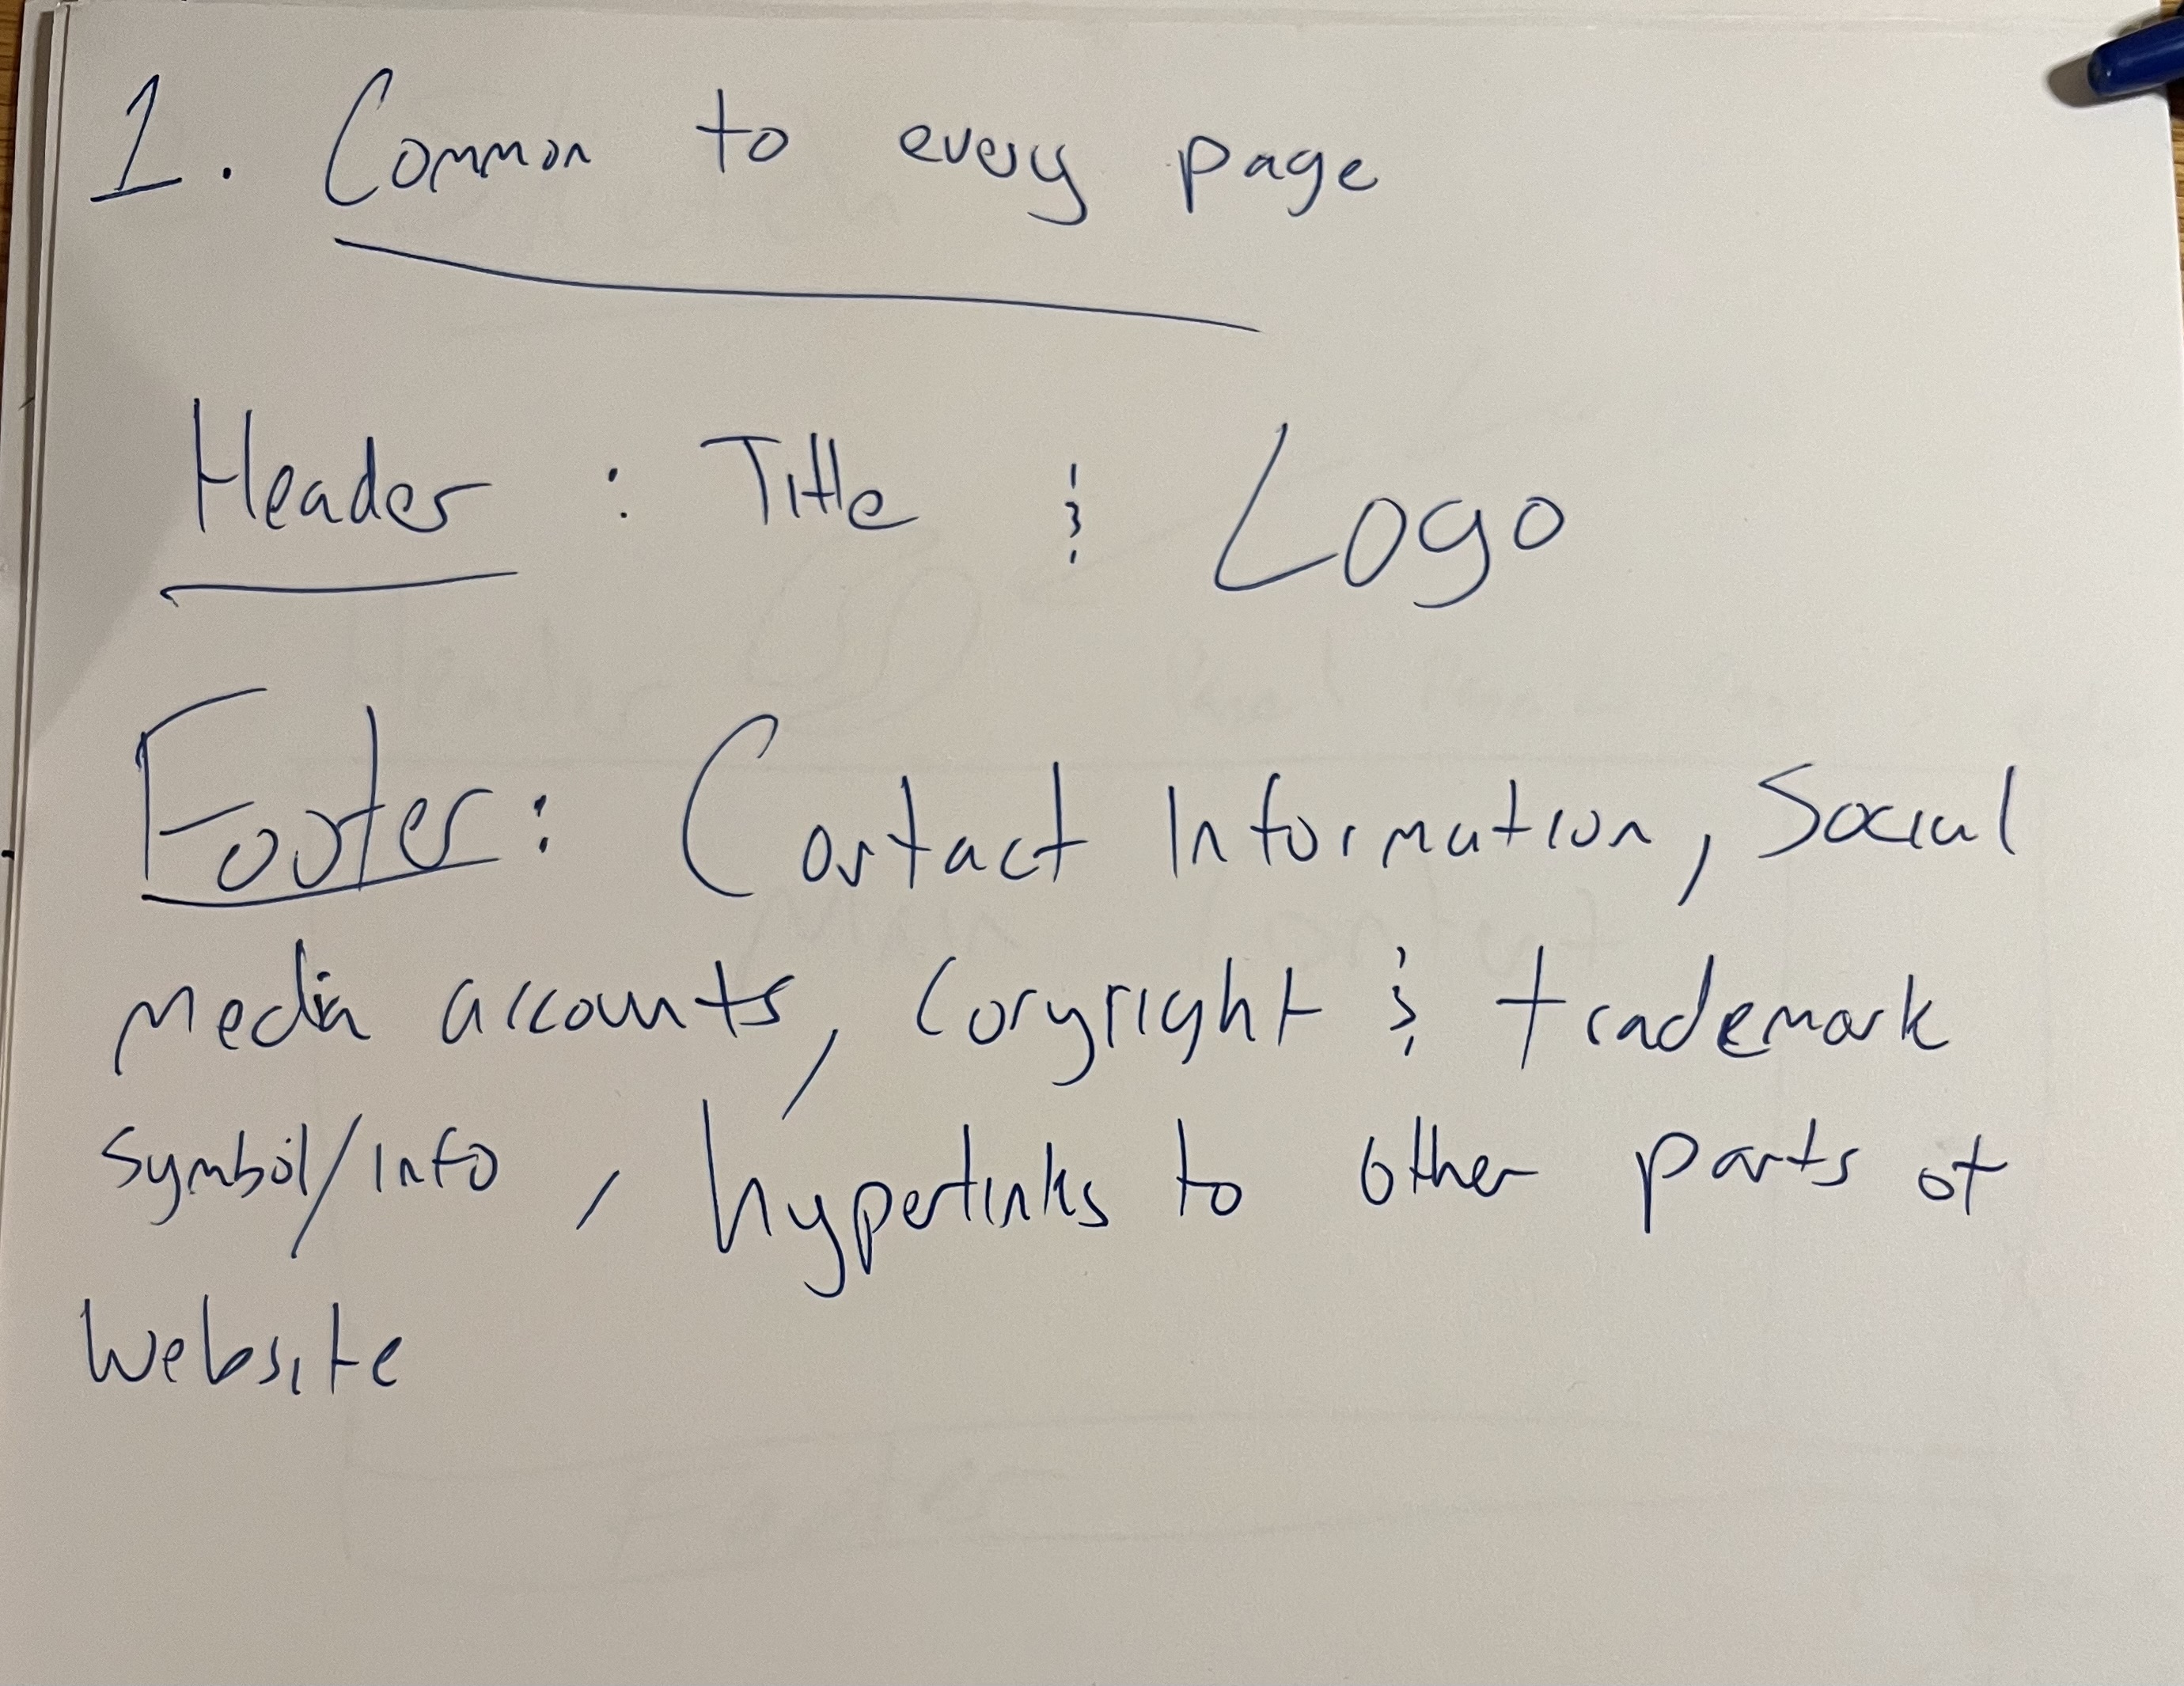 1. Common to every page
Header : Title & Logo
Footer: Contact Information, Social
media accounts, Copyright & trademark
symbol/info, hyperlinks to other parts of
website